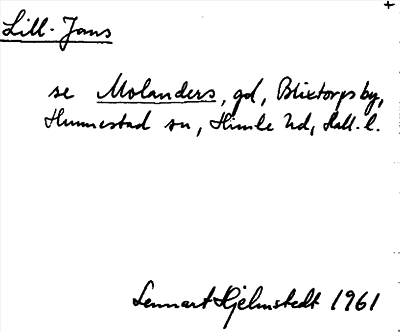 +
Lill-Jans
se Molanders, gd, Blixtorps by,
Hunnestad sn, Himle hd, Hall. l.
Lennart Hjelmstedt 1961